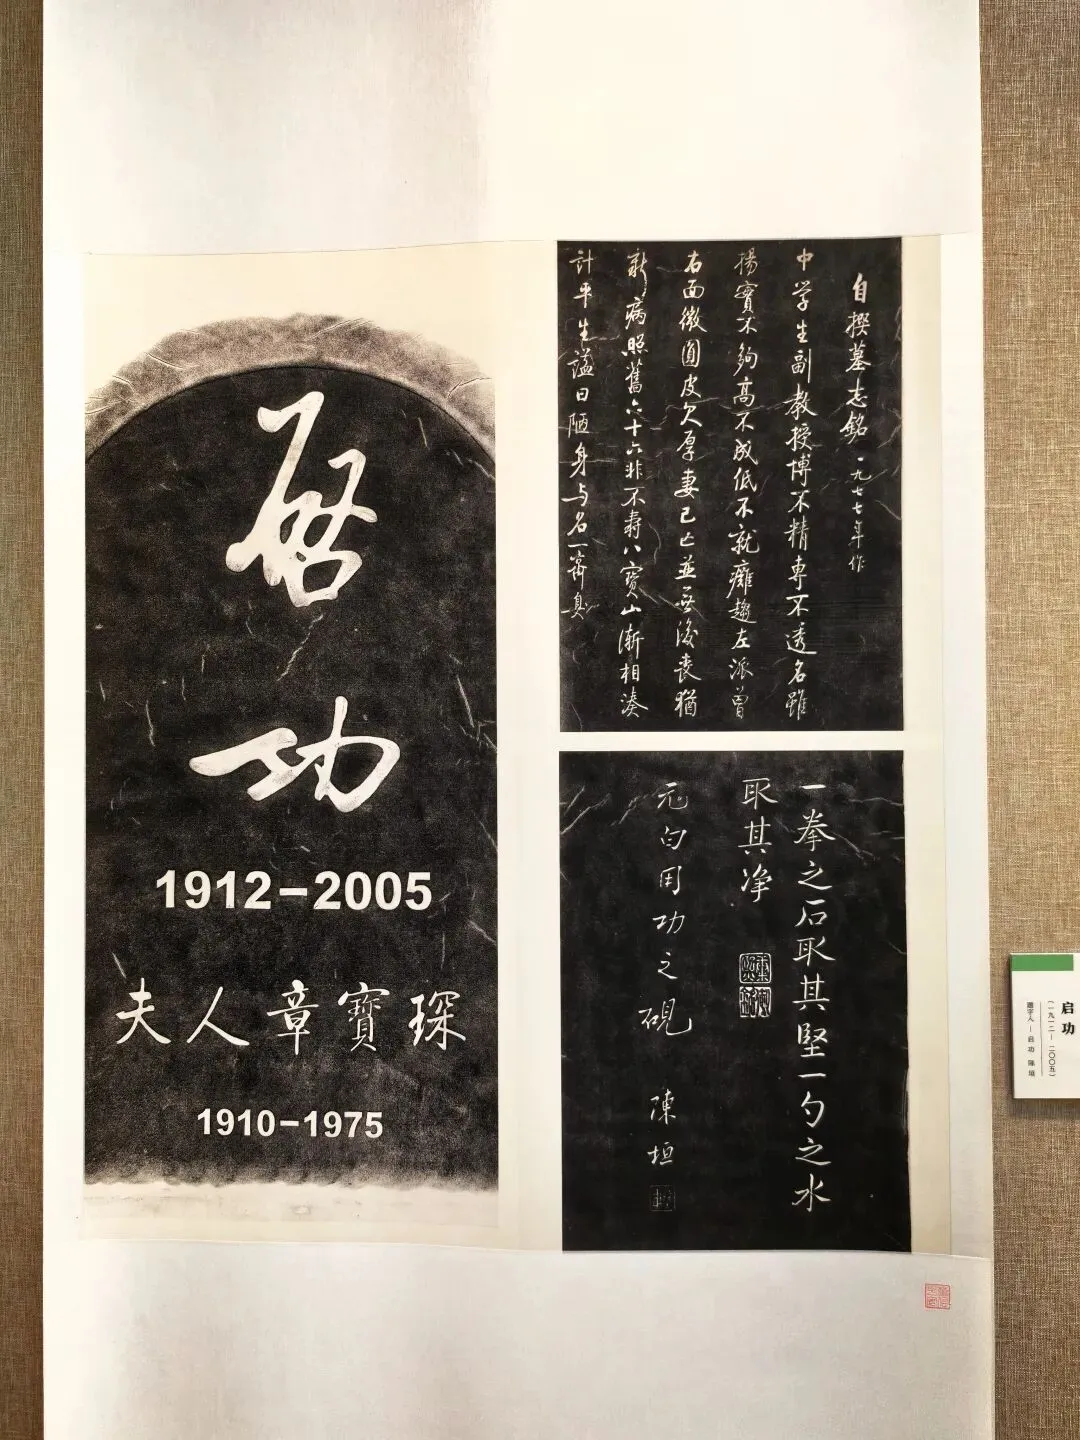 启
功
1912-2005
夫人章寳琛
1910-1975
自撰墓志銘 一九七七年作
中学生副教授博不精専不透名雖
揚實不夠高不成低不就癱趨左派曾
右面微圓皮欠厚妻已亡並無後喪猶
新病照舊六十六非不壽八寳山漸相湊
計平生謚曰陋身与名一齊臭
一拳之石取其堅一勺之水
取其净
元白用功之硯
陳垣
启功
(一九一二－二〇〇五)
題字人－启功 陳垣